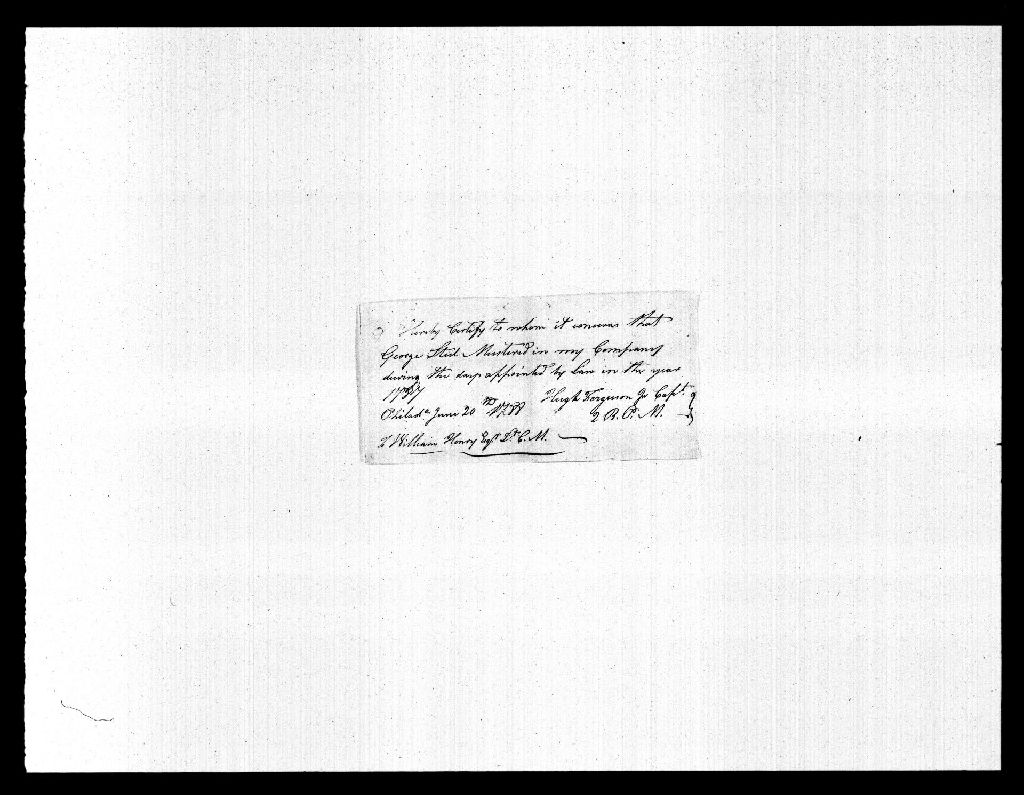 I Hereby Certify to whom it concerns that
George Sted Mustered in my Company
during the days appointed by Law in the year
1787
Hugh Ferguson Jr Capt.
Philada June 20th 1788
2 B. P. M.
To William Henry Esqr Lt. C. M.